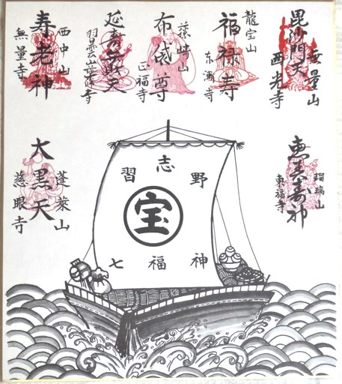 毘沙門天
西光寺
龍宝山
福禄寿
東漸寺
藤崎山
布袋尊
正福寺
西中山
寿老神
無量寺
瑠璃山
恵比寿神
東福寺
習志野
宝
七福神
蓬莱山
大黒天
慈眼寺